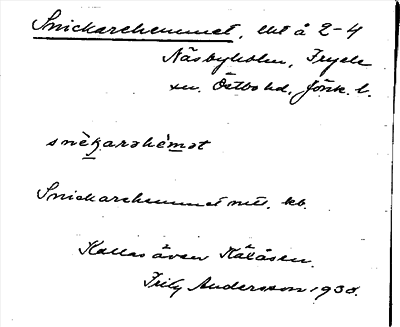 Snickarehemmet, lht å 2-4
Näsbyholm, Fryele
sn. Östbo hd, Jönk. l.
snèkarəhèmət
Snickarehemmet mtl. kb.
Kallas även Kälåsen.
Frily Andersson 1938.